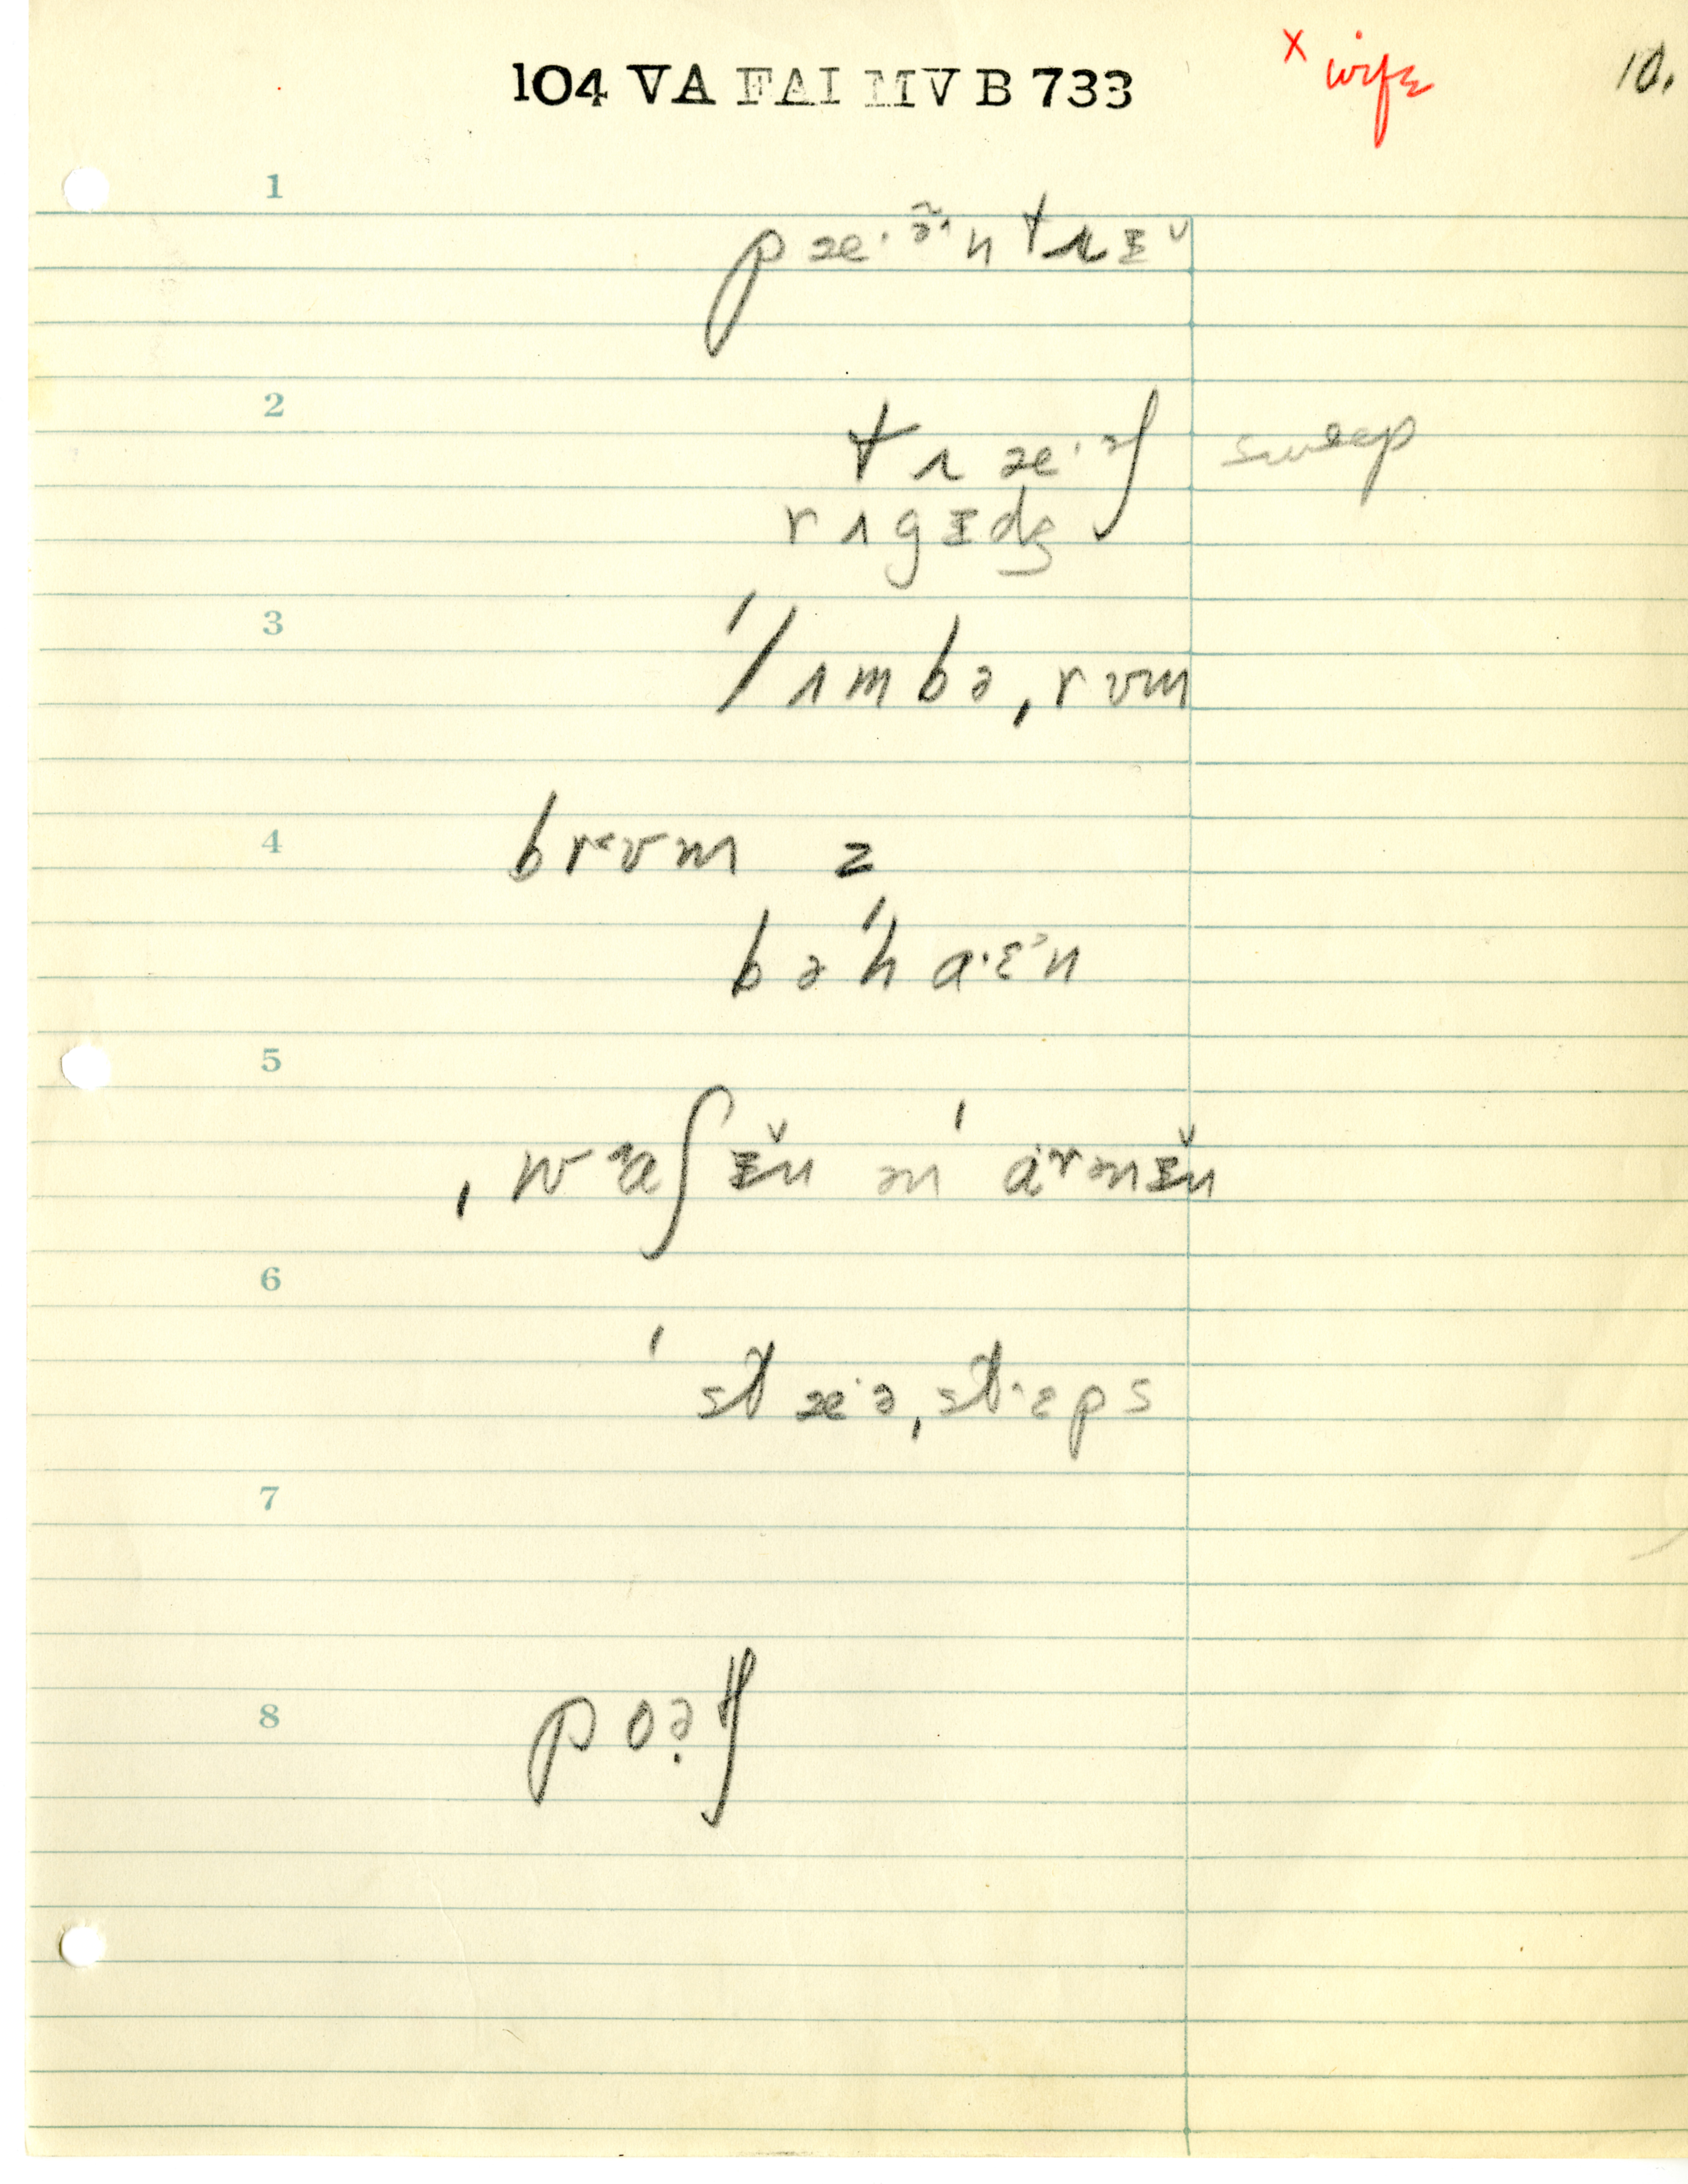 104 VA FAI MV B 733
x wife
10.
1
pæ·ə̃·ntrɪ̆
2
træ·əʃ sweep
rʌgɪdʒ
3
ˈlʌmbəˌrʊm
4
brʊm z
bəˈhaˑɛ̆n
5
ˌwɑʃɪ̆n mˈ ɑɚnɪ̆n
6
ˈstæˑəˌstɛps
7
8
poə̣tʃ